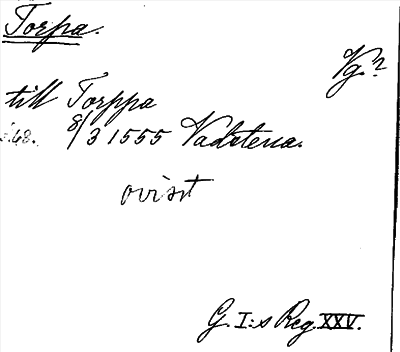 Torpa.
Vg?
till Torppa
s. 48. 8/3 1555 Vadstena.
ovisst
G. I:s Reg. XXV.